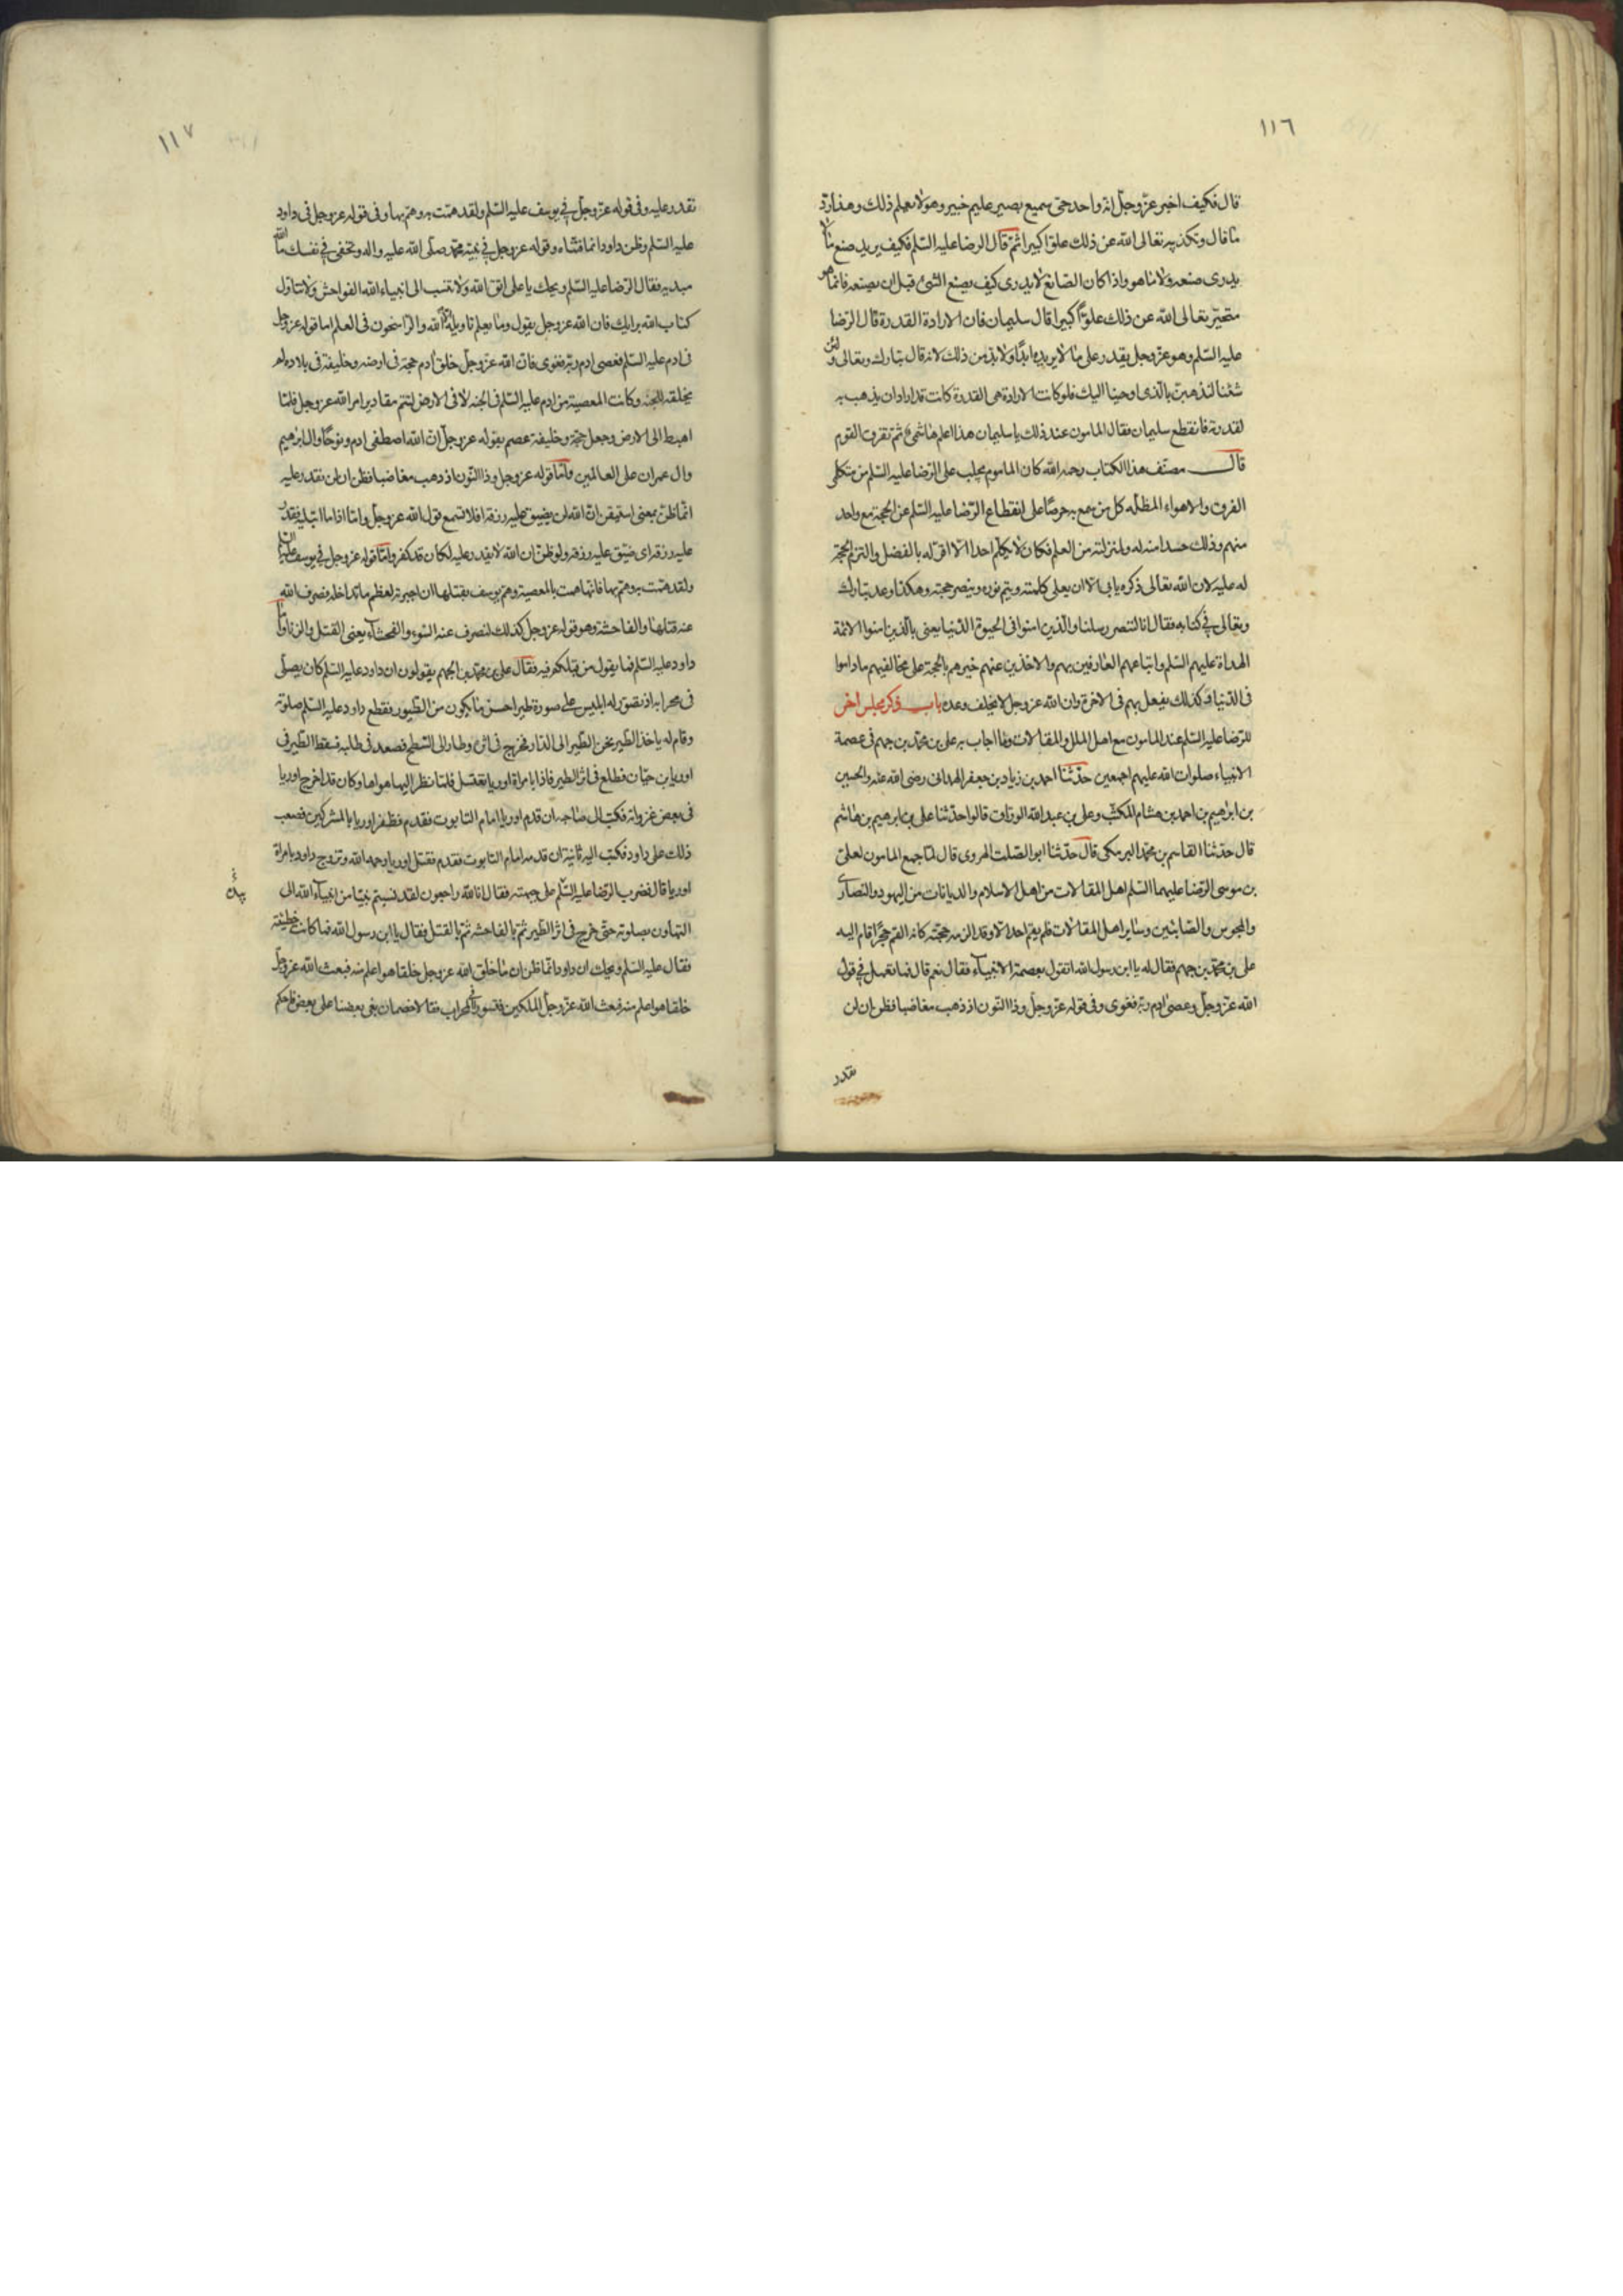 ١١٦
قال فكيف اخبر عزّ وجلّ انه واحد حىّ سميع بصير عليم خبير وهو لا يعلم ذلك وهذا ردّ
ما قال وتكذيبه تعالى الله عن ذلك علوّا كبيرا ثمّ قال الرضا عليه السّلم فكيف يريد صنع ما لا
يدرى صنعه ولا ما هو واذا كان الصانع لا يدرى كيف يصنع الشئ قبل ان يصنعه فانما هو
متحيّر تعالى الله عن ذلك علوّا كبيرا قال سليمان فان الارادة القدرة قال الرّضا
عليه السّلم وهو عزّ وجل يقدر على ما لا يريده ابدًا ولا بدّ من ذلك لانه قال تبارك وتعالى ولئن
شئنا لنذهبنّ بالّذى اوحينا اليك فلو كانت الارادة هى القدرة كانت قد اراد ان يذهب به
لقدرته فانقطع سليمان فقال المامون عند ذلك يا سليمان هذا اعلم هاشمىّ ثم تفرق القوم
قال مصنّف هذا الكتاب رحمه الله كان المامون يجلب على الرّضا عليه السّلم من متكلمى
الفرق والاهواء المظله كل من سمع به حرصًا على انقطاع الرّضا عليه السّلم عن الحجة مع واحد
منهم وذلك حسدا منه له ولمنزلته من العلم فكان لا يكلّم احدا الّا اقرّ له بالفضل والتزم الحجة
له عليه لان الله تعالى ذكره يابى الا ان يعلى كلمته ويتم نوره وينصر حجته وهكذا وعد تبارك
وتعالى فى كتابه فقال انا لننصر رسلنا والّذين امنوا فى الحيوة الدّنيا يعنى بالّذين امنوا الائمة
الهداة عليهم السّلم واتباعهم العارفين بهم والاخذين عنهم خيرهم بالحجة على مخالفيهم ما داموا
فى الدّنيا وكذلك يفعل بهم فى الاخرة وان الله عز وجل لا يخلف وعده باب ذكر مجلس اخر
للرّضا عليه السّلم عند المامون مع اهل الملل والمقالات وما اجاب به على بن محمّد بن جهم فى عصمة
الانبياء صلوات الله عليهم اجمعين حدّثنا احمد بن زياد بن جعفر الهمدانى رضى الله عنه والحسين
بن ابرهيم بن احمد بن هشام المكتّب وعلى بن عبد الله الورّاق قالوا حدّثنا على بن ابرهيم بن هاشم
قال حدّثنا القاسم بن محمّد البرمكى قال حدّثنا ابو الصّلت الهروى قال لمّا جمع المامون لعلىّ
بن موسى الرّضا عليهما السّلم اهل المقالات من اهل الاسلام والديانات من اليهود والنصارى
والمجوس والصّابئين وساير اهل المقالات فلم يقم احد الا وقد الزمه حجّته كانه القم حجرًا قام اليه
على بن محمّد بن جهم فقال له يا ابن رسول الله اتقول بعصمة الانبياء فقال نعم قال فما تعمل فى قول
الله عزّ وجلّ وعصى ادم ربّه فغوى وفى قوله عزّ وجلّ وذا النّون اذ ذهب مغاضبا فظن ان لن
نقدر
١١٧
نقدر عليه وفى قوله عزّ وجلّ فى يوسف عليه السّلم ولقد همّت به وهمّ بها وفى قوله عز وجل فى داود
عليه السّلم وظن داود انما فتنّاه وقوله عز وجل فى نبيّه محمّد صلّى الله عليه واله وتخفى فى نفسك ما الله
مبديه فقال الرّضا عليه السّلم ويحك يا على اتق الله ولا تنسب الى انبياء الله الفواحش ولا تتاوّل
كتاب الله برايك فان الله عز وجل يقول وما يعلم تاويله الا الله والرّاسخون فى العلم اما قوله عز وجل
فى ادم عليه السّلم فعصى ادم ربّه فغوى فانّ الله عزّ وجلّ خلق ادم حجة فى ارضه وخليفة فى بلاده لم
يخلقه للجنه وكانت المعصية من ادم عليه السّلم فى الجنه لا فى الارض لتتم مقادير امر الله عز وجل فلمّا
اهبط الى الارض وجعل حجّة وخليفة عصم بقوله عز وجلّ انّ الله اصطفى ادم ونوحًا وال ابرهيم
وال عمران على العالمين وامّا قوله عز وجل وذا النّون اذ ذهب مغاضبا فظن ان لن نقدر عليه
انّما ظنّ بمعنى استيقن انّ الله لن يضيق عليه رزقه افلا تسمع قول الله عز وجلّ وامّا اذا ما ابتليه فقدر
عليه رزقه اى ضيّق عليه رزقه ولو ظنّ ان الله لا يقدر عليه لكان قد كفر وامّا قوله عز وجل فى يوسف عليه السلم
ولقد همّت به وهمّ بها فانها همت بالمعصية وهمّ يوسف بقتلها ان اجبرته لعظم ما تداخله فصرف الله
عنه قتلها والفاحشة وهو قوله عز وجلّ كذلك لنصرف عنه السّوء والفحشاء يعنى القتل والزنا وامّا
داود عليه السّلم فما يقول من قبلكم فيه فقال على بن محمّد بن الجهم يقولون ان داود عليه السّلم كان يصلّى
فى محرابه اذ تصوّر له ابليس على صورة طير احسن ما يكون من الطّيور فقطع داود عليه السّلم صلوته
وقام له ياخذ الطّير فخرج الطّير الى الدّار فخرج فى اثره وطار الى السّطح فصعد فى طلبه فسقط الطّير فى
اوريا بن حيّان فطلع فى اثر الطير فاذا بامراة اوريا تغتسل فلمّا نظر اليها هواها وكان قد اخرج اوريا
فى بعض غزواته فكتب الى صاحبه ان قدم اوريا امام التابوت فقدم فظفر اوريا بالمشركين فصعب
ذلك على داود فكتب اليه ثانية ان قدمه امام التابوت فقدم فقتل اوريا رحمه الله وتزوج داود بامراة
اوريا قال فضرب الرّضا عليه السّلم على جبهته فقال انا لله وانا اليه راجعون لقد نسبتم نبيّا من انبياء الله الى
التهاون بصلوته حتّى خرج فى اثر الطّير ثمّ بالفاحشه ثمّ بالقتل فقال يا ابن رسول الله فما كانت خطيئته
فقال عليه السّلم ويحك ان داود انّما ظن ان ما خلق الله عز وجل خلقا هو اعلم منه فبعث الله عز وجلّ
خلقا هو اعلم منه فبعث الله عزّ وجلّ الملكين فتسوّرا المحراب فقالا خصمان بغى بعضنا على بعض فاحكم